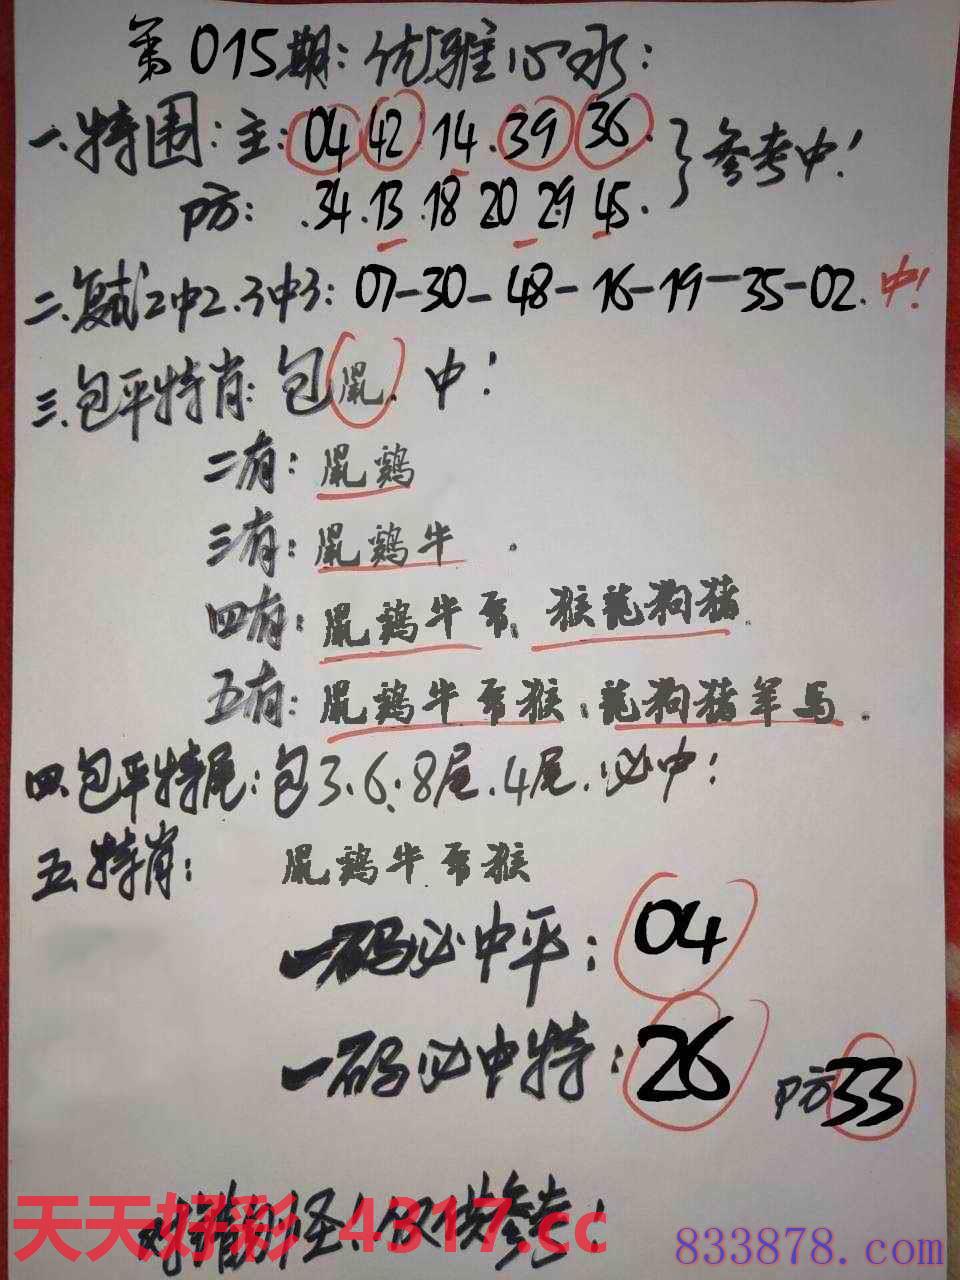 第015期：优雅心水：
一.特围：主：04 42.14.39 36.
防：.34.13.18 20 29 45. }参考中！
二.复试2中2.3中3：07-30-48-16-19-35-02.中！
三.包平特肖：包鼠.中！
二有：鼠鸡
三有：鼠鸡牛.
四有：鼠鸡牛兔.猴龍狗猪.
五有：鼠鸡牛兔猴.龍狗猪羊马.
四.包平特尾：包3.6.8尾.4尾.必中！
五.特肖：鼠鸡牛兔猴
一码必中平：04
一码必中特：26 防33
怪！仅供参考！
天天好彩 4317.cc
833878.com